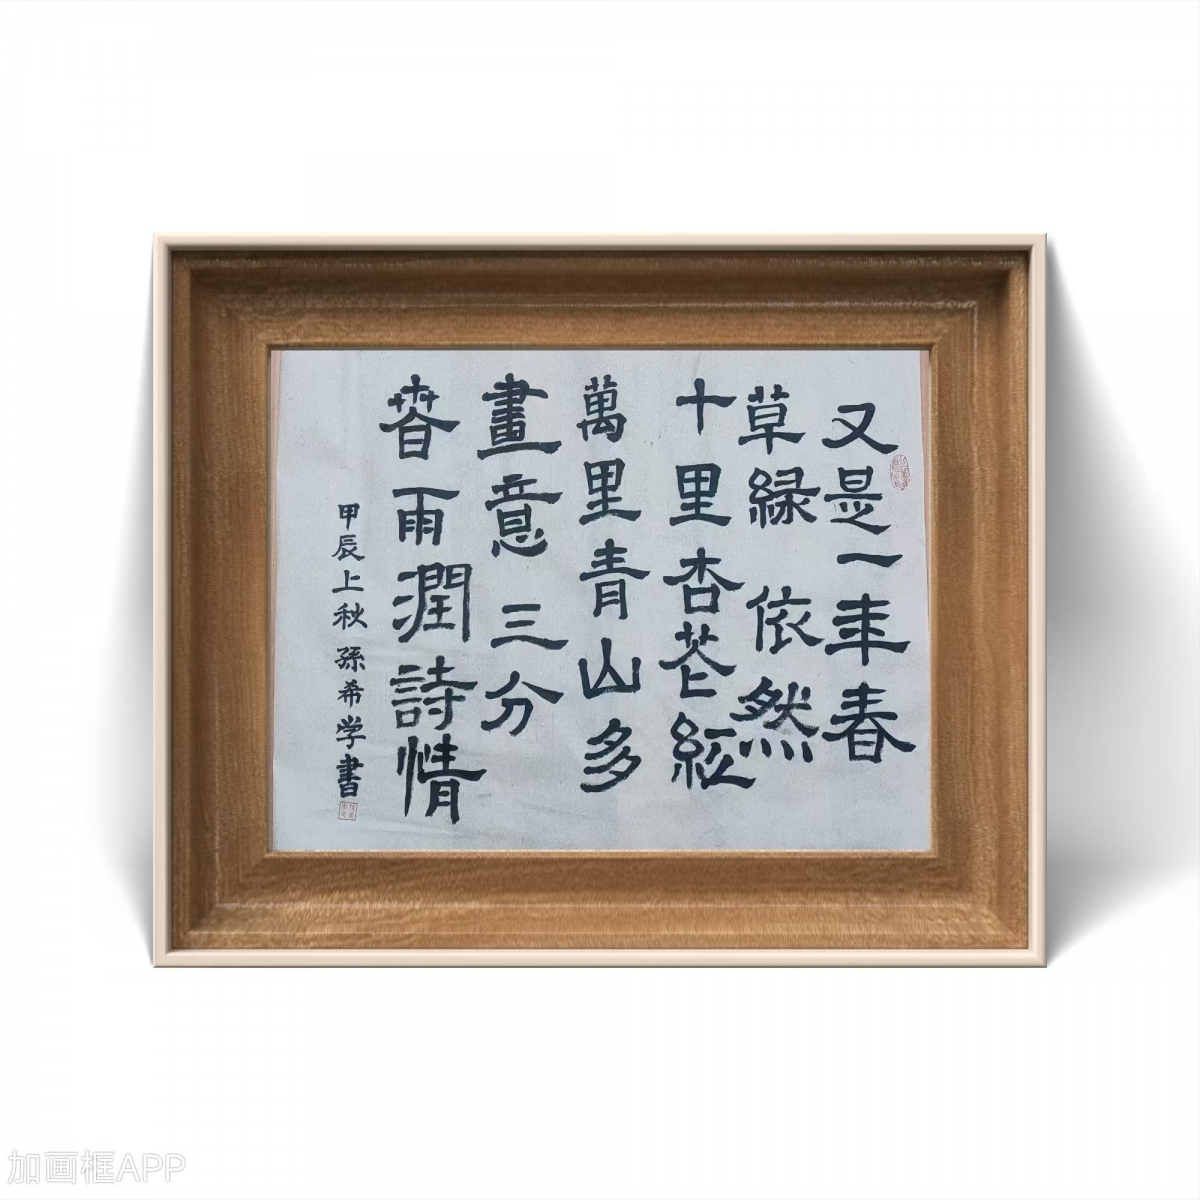 又是一年春
草緑依然
十里杏花紅
萬里青山多
畫意三分
春雨潤詩情
甲辰上秋孫希学書
加画框APP